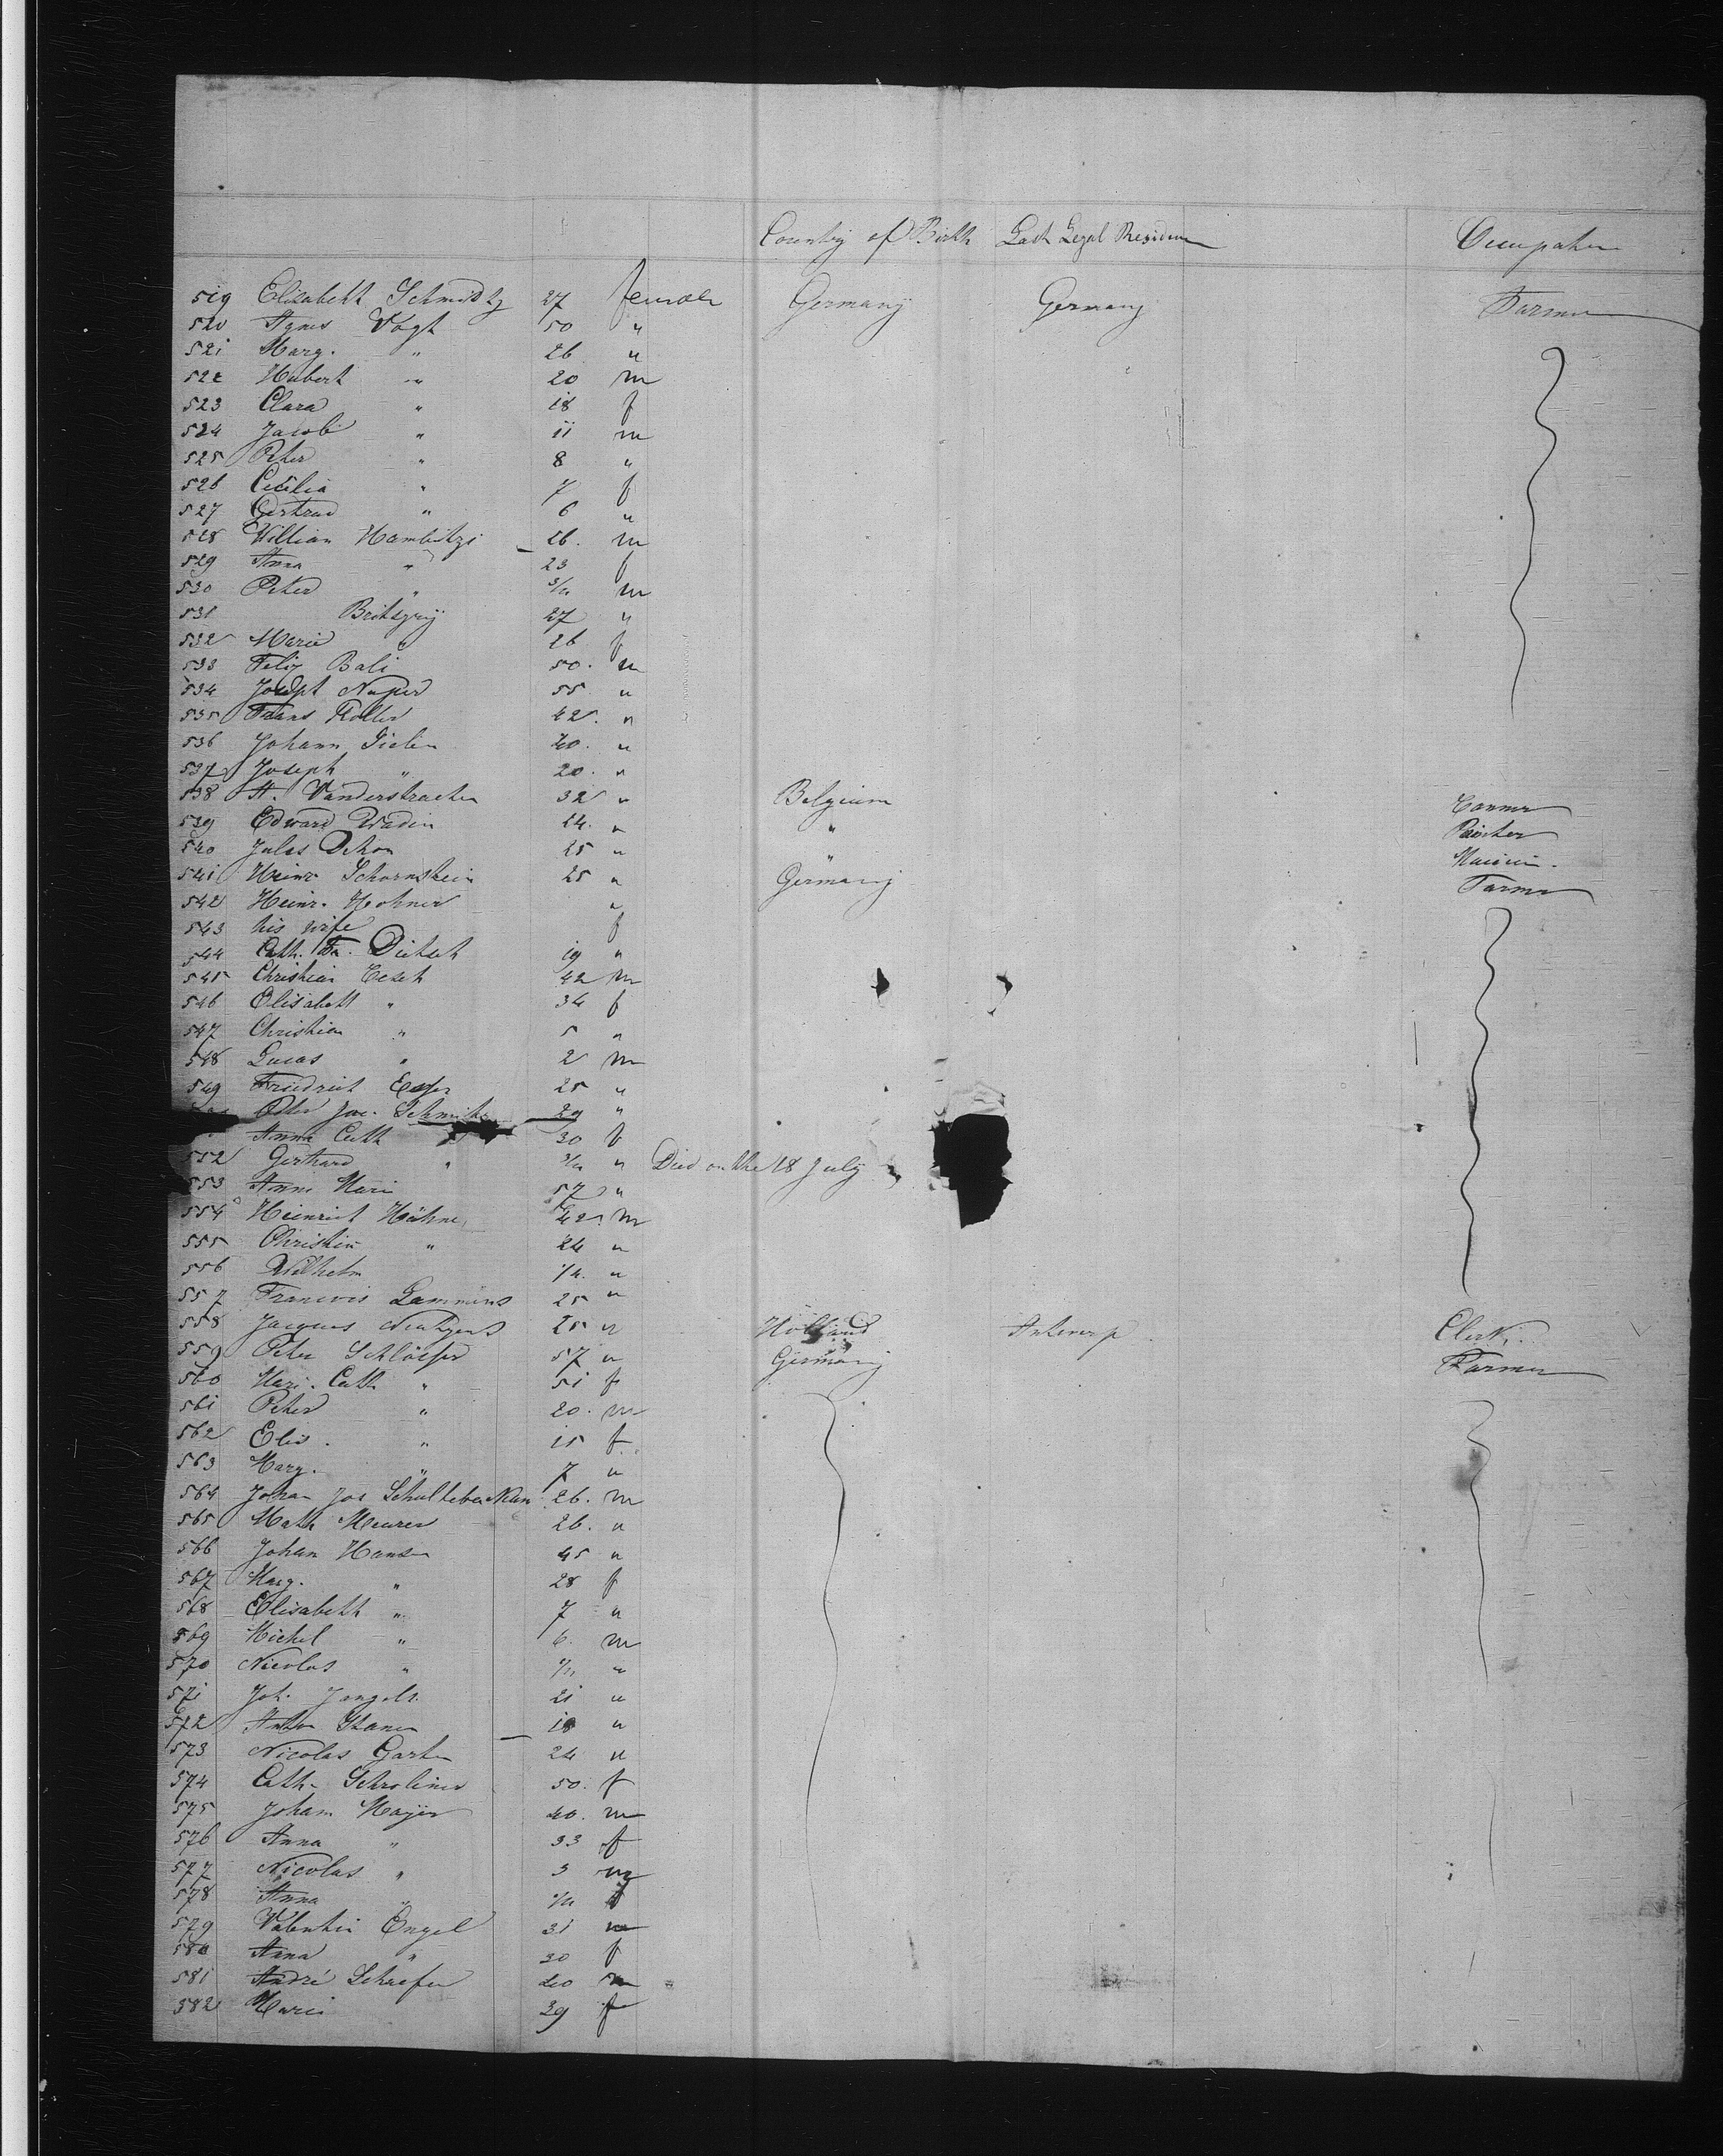 Country of Birth Last Legal Residence Occupation
519 Elisabeth Schmidtz 27 female Germany Germany Farmer
520 Agnes Vogt 50 "
521 Marg. " 26 "
522 Hubert " 20 m
523 Clara " 18 f
524 Jacob " 11 m
525 Peter " 8 "
526 Cecilia " 7 f
527 Gertrud " 6 "
528 William 26. m
529 Anna " 23 f
530 Peter " m
531 27 "
532 Marie " 26 f
533 Felix Bali 50. m
534 Joseph 55 "
535 Frans 42. "
536 Johann 40. "
537 Joseph " 20. "
538 A. Vanderstraeten 32 " Belgium
539 Edward 24. " " Painter
540 Jules 25 " "
541 Heinr. Schornstein 25 " Germany Farmer
542 Heinr. Hohner "
543 his wife f
544 Cath. Dietsch 19 "
545 Christian 42 m
546 Elisabeth " 34 f
547 Christian " 5 "
548 Lucas " 2 m
549 Friedrich Esser 25 "
Peter Jac. Schmitz 29 "
Anna Cath 30 f
552 Gerhard " " Died on the 18 July
553 Anna Mari 57 "
554 Heinrich Höhner 42. m
555 Christian " 24 "
556 Wilhelm "
557 Francois Lammens 25 "
558 Jacques 25 " Holland Antwerp Clerk.
559 Peter Schlösser 57 " Germany Farmer
560 Mari. Cath " 51 f
561 Peter " 20. m
562 Elis. " 15 f.
563 Marg. " 7 "
564 Johan Jos 26. m
565 Math Meurer 26. "
566 Johan Hansen 45 "
567 Marg. " 28 f
568 Elisabeth " 7 "
569 Michel " 6. m
570 Nicolas " "
571 Joh. 21 "
572 Anton 18 "
573 Nicolas Garten 24 "
574 Cath. 50. f
575 Joham Mayer 40. m
576 Anna " 33 f
577 Nicolas " 3 m
578 Anna " f
579 Valentin Engel 31 m
580 Anna " 30 f
581 André Schaefer 40 m
582 Marie 39 f